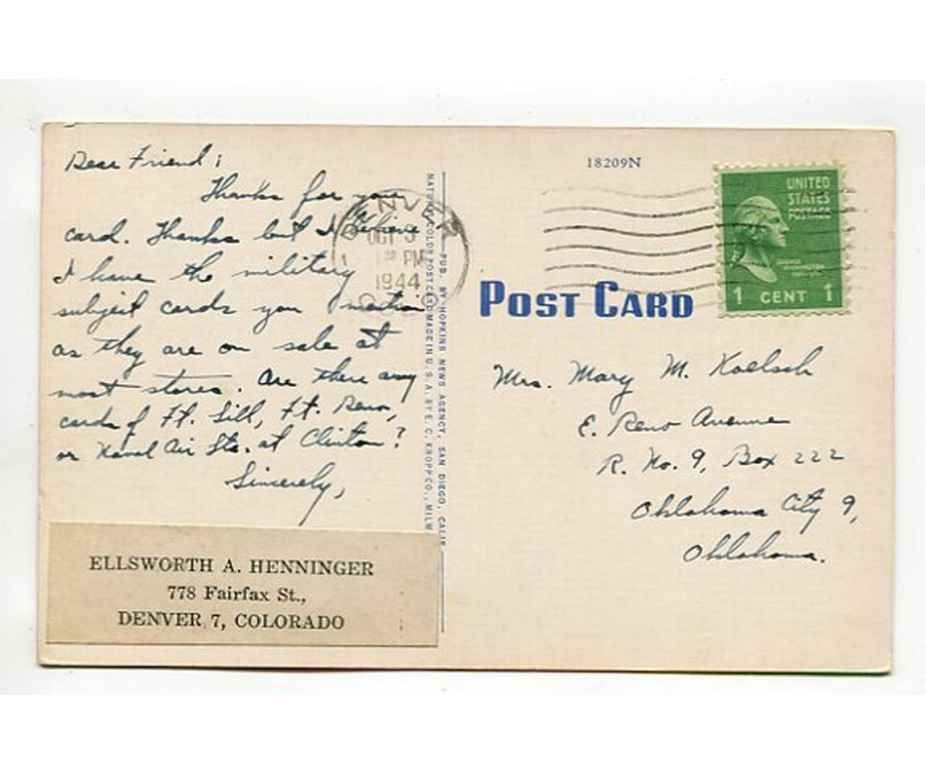 Dear Friend;
Thanks for your
card. Thanks but I believe
I have the military
subject cards you mention
as they are on sale at
most stores. Are there any
cards of Ft. Sill, Ft. Reno,
or Naval Air Sta. at Clinton?
Sincerely,
ELLSWORTH A. HENNINGER
778 Fairfax St.,
DENVER 7, COLORADO
PUB. BY HOPKINS NEWS AGENCY, SAN DIEGO, CALIF.
NATURAL COLOR POST CARD MADE IN U. S. A. BY E. C. KROPP CO., MILW
DENVER
OCT 3
PM
1944
COLO
18209N
UNITED
STATES
POSTAGE
1 CENT 1
POST CARD
Mrs. Mary M. Koelsch
E. Reno Avenue
R. No. 9, Box 222
Oklahoma City 9,
Oklahoma.